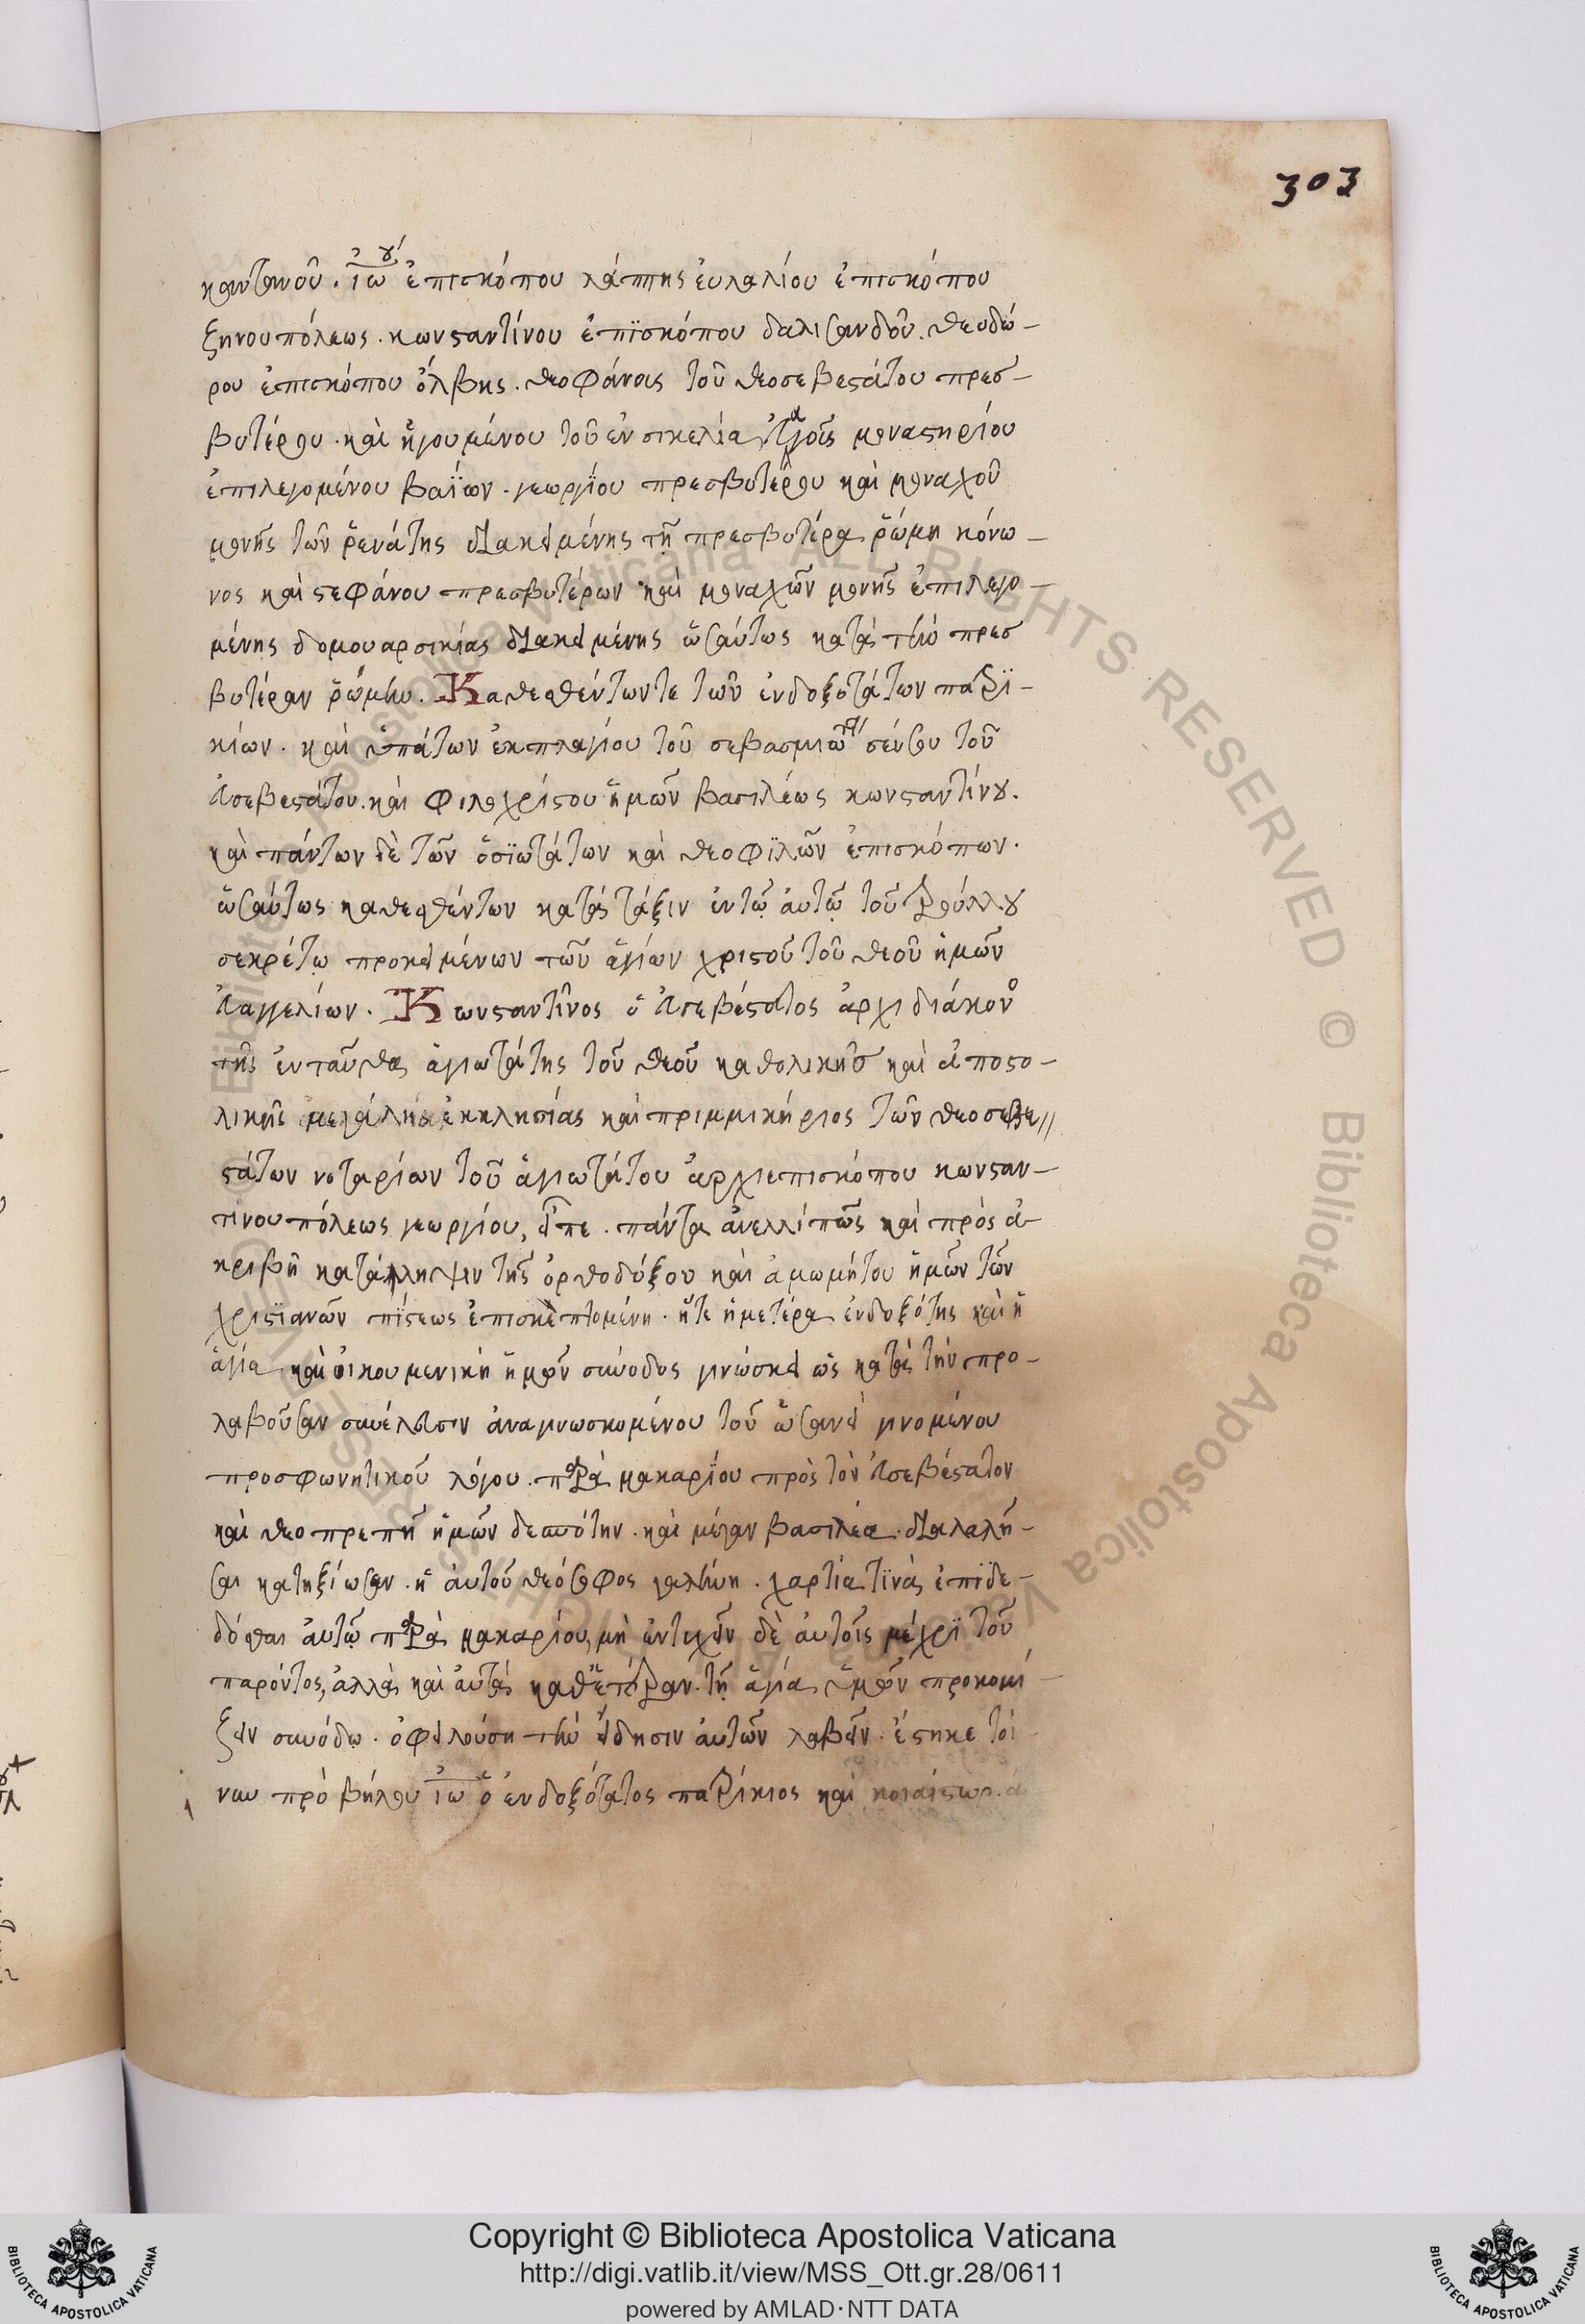 303
κανζανοῦ. ἰωου ἐπισκόπου λάππης εὐλαλίου ἐπισκόπου
ζηνουπόλεως. κωνσταντίνου ἐπϊσκόπου δαλισανδοῦ. θεοδώ-
ρου ἐπισκόπου ὄλβης. θεοφάνους τοῦ θεοσεβεστάτου πρεσ-
βυτέρου. καὶ ἡγουμένου τοῦ ἐν σικελία μοναστηρίου
ἐπιλεγομένου βαΐων. γεωργίου πρεσβυτέρου καὶ μοναχοῦ
μονῆς τῶν ῥενάτης διακειμένης τῇ πρεσβυτέρα ῥώμη κόνω-
νος καὶ στεφάνου πρεσβυτέρων καὶ μοναχῶν μονῆς ἐπιλεγο-
μένης δομουαρσικίας διακειμένης ὡσαύτως κατὰ τὴν πρεσ
βυτέραν ῥώμην. Καθεσθέντων τε τῶν ἐνδοξοτάτων πατρϊ-
κίων. καὶ ὑπάτων ἐκ πλαγίου τοῦ σεβασμιωτά σένζου τοῦ
εὐσεβεστάτου. καὶ φιλοχρίστου ἡμῶν βασιλέως κωνσταντίνου.
καὶ πάντων δὲ τῶν ὁσϊωτάτων καὶ θεοφϊλῶν ἐπισκόπων.
ὡσαύτως καθεσθέντων κατὰ τάξιν ἐν τῷ αὐτῷ τοῦ τρούλλου
σεκρέτῳ προκειμένων τῶν ἁγίων χριστοῦ τοῦ θεοῦ ἡμῶν
εὐαγγελίων. Κωνσταντῖνος ὁ εὐσεβέστατος ἀρχιδιάκονο
τῆς ἐνταῦθα ἁγιωτάτης τοῦ θεοῦ καθολικῆς καὶ ἀποστο-
λικῆς μεγάλης ἐκκλησίας καὶ πριμμικήριος τῶν θεοσεβε//
στάτων νοταρίων τοῦ ἁγιωτάτου ἀρχιεπισκόπου κωνσταν-
τινουπόλεως γεωργίου, εἶπε. πάντα ἀνελλιπῶς καὶ πρὸς ἀ-
κριβῆ κατάληψιν τῆς ὀρθοδόξου καὶ ἀμωμήτου ἡμῶν τῶν
χριστϊανῶν πΐστεως ἐπισκεπτομένη. ἥτε ἡμετέρα ἐνδοξότης καὶ ἡ
ἁγία καὶ οἰκουμενικὴ ἡμῶν σύνοδος γινώσκει ὡς κατὰ τὴν προ-
λαβοῦσαν συνέλευσιν ἀναγινωσκομένου τοῦ ὡσανεὶ γινομένου
προσφωνητικοῦ λόγου. παρὰ μακαρΐου πρὸς τὸν εὐσεβέστατον
καὶ θεοπρεπῆ ἡμῶν δεσπότην. καὶ μέγαν βασιλέα. διαλαλῆ-
σαι κατηξίωσεν. ἡ αὐτοῦ θεόσοφος γαλήνη. χαρτία τϊνὰ ἐπϊδε-
δόσθαι αὐτῷ παρὰ μακαρίου, μὴ ἐντυχεῖν δὲ αὐτοῖς μέχρϊ τοῦ
παρόντος, ἀλλὰ καὶ αὐτὰ καθ' ἑτέραν. τῇ ἁγία ὑμῶν προκομί-
ζειν συνόδῳ. ὀφειλούση τὴν εἴδησιν αὐτῶν λαβεῖν. ἔστηκε τοί-
νυν πρὸ βήλου ἰω ὁ ἐνδοξότατος πατρίκιος καὶ κοιαίστωρ. ἀ